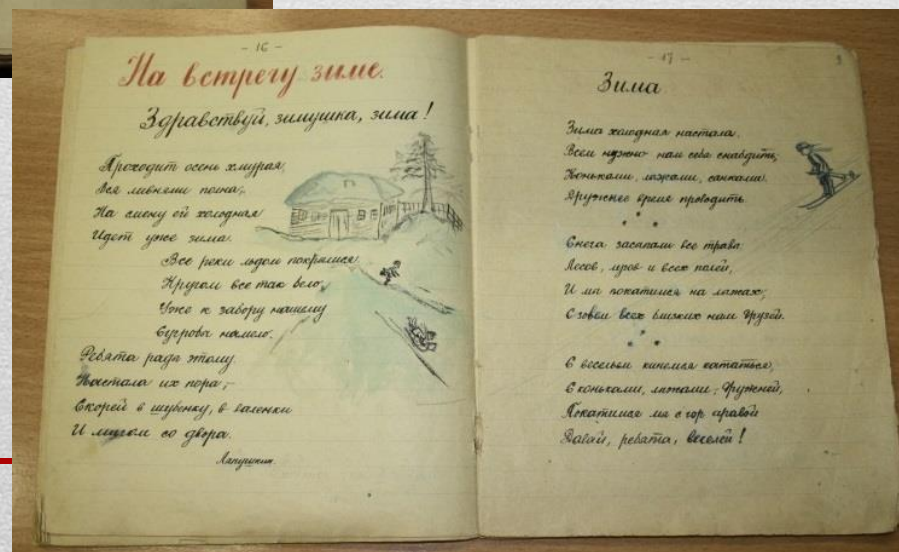 - 16 -
На встречу зиме.
Здравствуй, зимушка, зима!
Проходит осень хмурая,
Вся ливнями полна;
На смену ей холодная
Идет уже зима.
Все реки льдом покрылися
Кругом все так бело,
Уже к забору нашему
Сугробы намело.
Ребята рады этому.
Настала их пора,
Скорей в шубенку, в валенки
И мигом со двора.
- 17 -
Зима
Зима холодная настала,
Всем нужно нам себя снабдить,
Коньками, лыжами, санками.
Дружнее время проводить
* *
Снега засыпали все травы
Лесов, лугов и всех полей,
И мы покатимся на лыжах;
С зовем всех близких нам друзей.
* *
С весельем кинемся кататься,
С коньками, лыжами; дружней,
Покатимся мы с гор оравой
Давай, ребята, веселей!